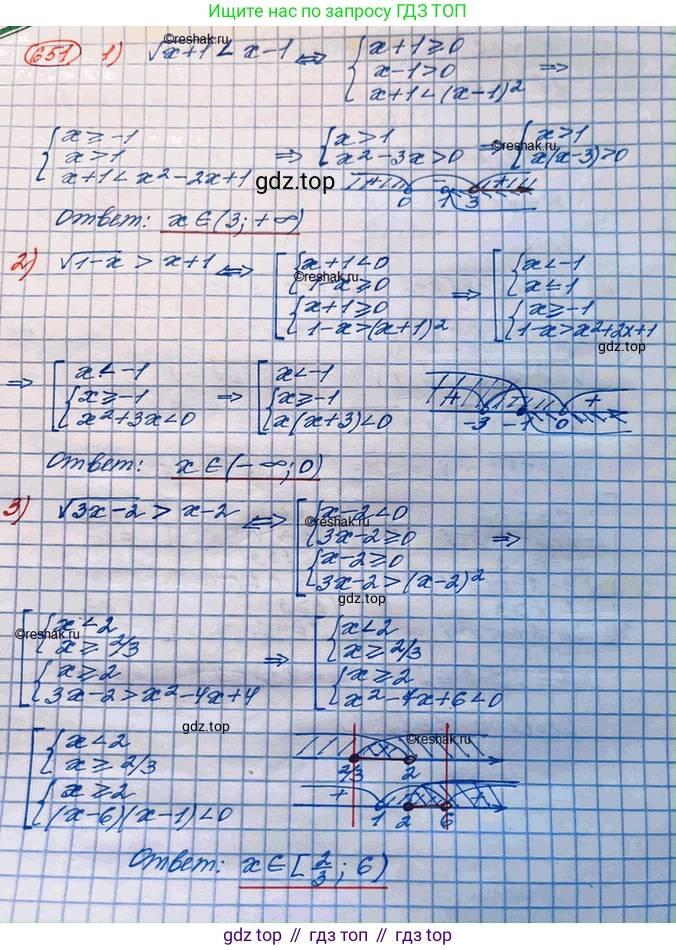 Ищите нас по запросу ГДЗ ТОП
651 1) √x+1 < x-1 ⇔ { x+1≥0
x-1>0 ⇒
x+1<(x-1)²
©reshak.ru
{ x≥-1
x>1 ⇒ { x>1 ⇒ { x>1
x+1<x²-2x+1 x²-3x>0 x(x-3)>0
©reshak.ru
gdz.top
+ - +
0 1 3
Ответ: x∈(3; +∞)
2) √1-x > x+1 ⇔ [ { x+1<0
1-x≥0
{ x+1≥0
1-x>(x+1)²
⇒ [ { x<-1
x≤1
{ x≥-1
1-x>x²+2x+1
©reshak.ru
gdz.top
⇒ [ x<-1
{ x≥-1
x²+3x<0
⇒ [ x<-1
{ x≥-1
x(x+3)<0
+ +
-3 -1 0
Ответ: x∈(-∞; 0)
3) √3x-2 > x-2 ⇔ [ { x-2<0
3x-2≥0 ⇒
{ x-2≥0
3x-2>(x-2)²
©reshak.ru
gdz.top
[ { x<2
x≥2/3
{ x≥2
3x-2>x²-4x+4
©reshak.ru
⇒ [ { x<2
x≥2/3
{ x≥2
x²-7x+6<0
gdz.top
[ { x<2
x≥2/3
{ x≥2
(x-6)(x-1)<0
©reshak.ru
2/3 2
+ - +
1 2 6
Ответ: x∈[2/3; 6)
gdz top // гдз топ // gdz top